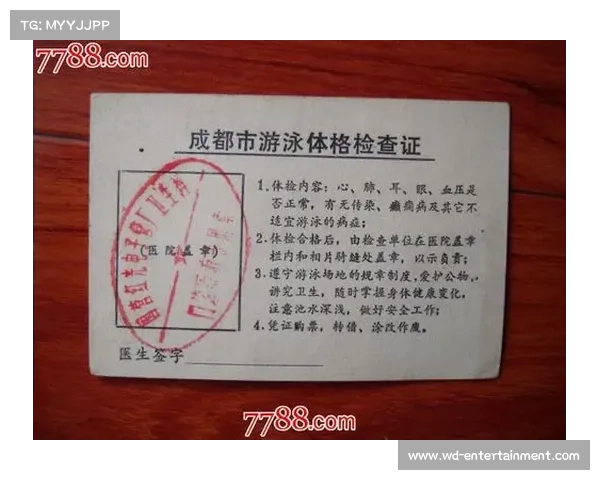 TG: MYYJJPP
7788.com
成都市游泳体格检查证
(医院盖章)
1.体检内容：心、肺、耳、眼、血压是
否正常，有无传染、癫痫病及其它不
适宜游泳的病症；
2.体检合格后，由检查单位在医院盖章
栏内和相片骑缝处盖章，以示负责；
3.遵守游泳场地的规章制度，爱护公物，
讲究卫生，随时掌握身体健康变化，
注意池水深浅，做好安全工作；
4.凭证购票，转借、涂改作废。
医生签字
7788.com
www.wd-entertainment.com